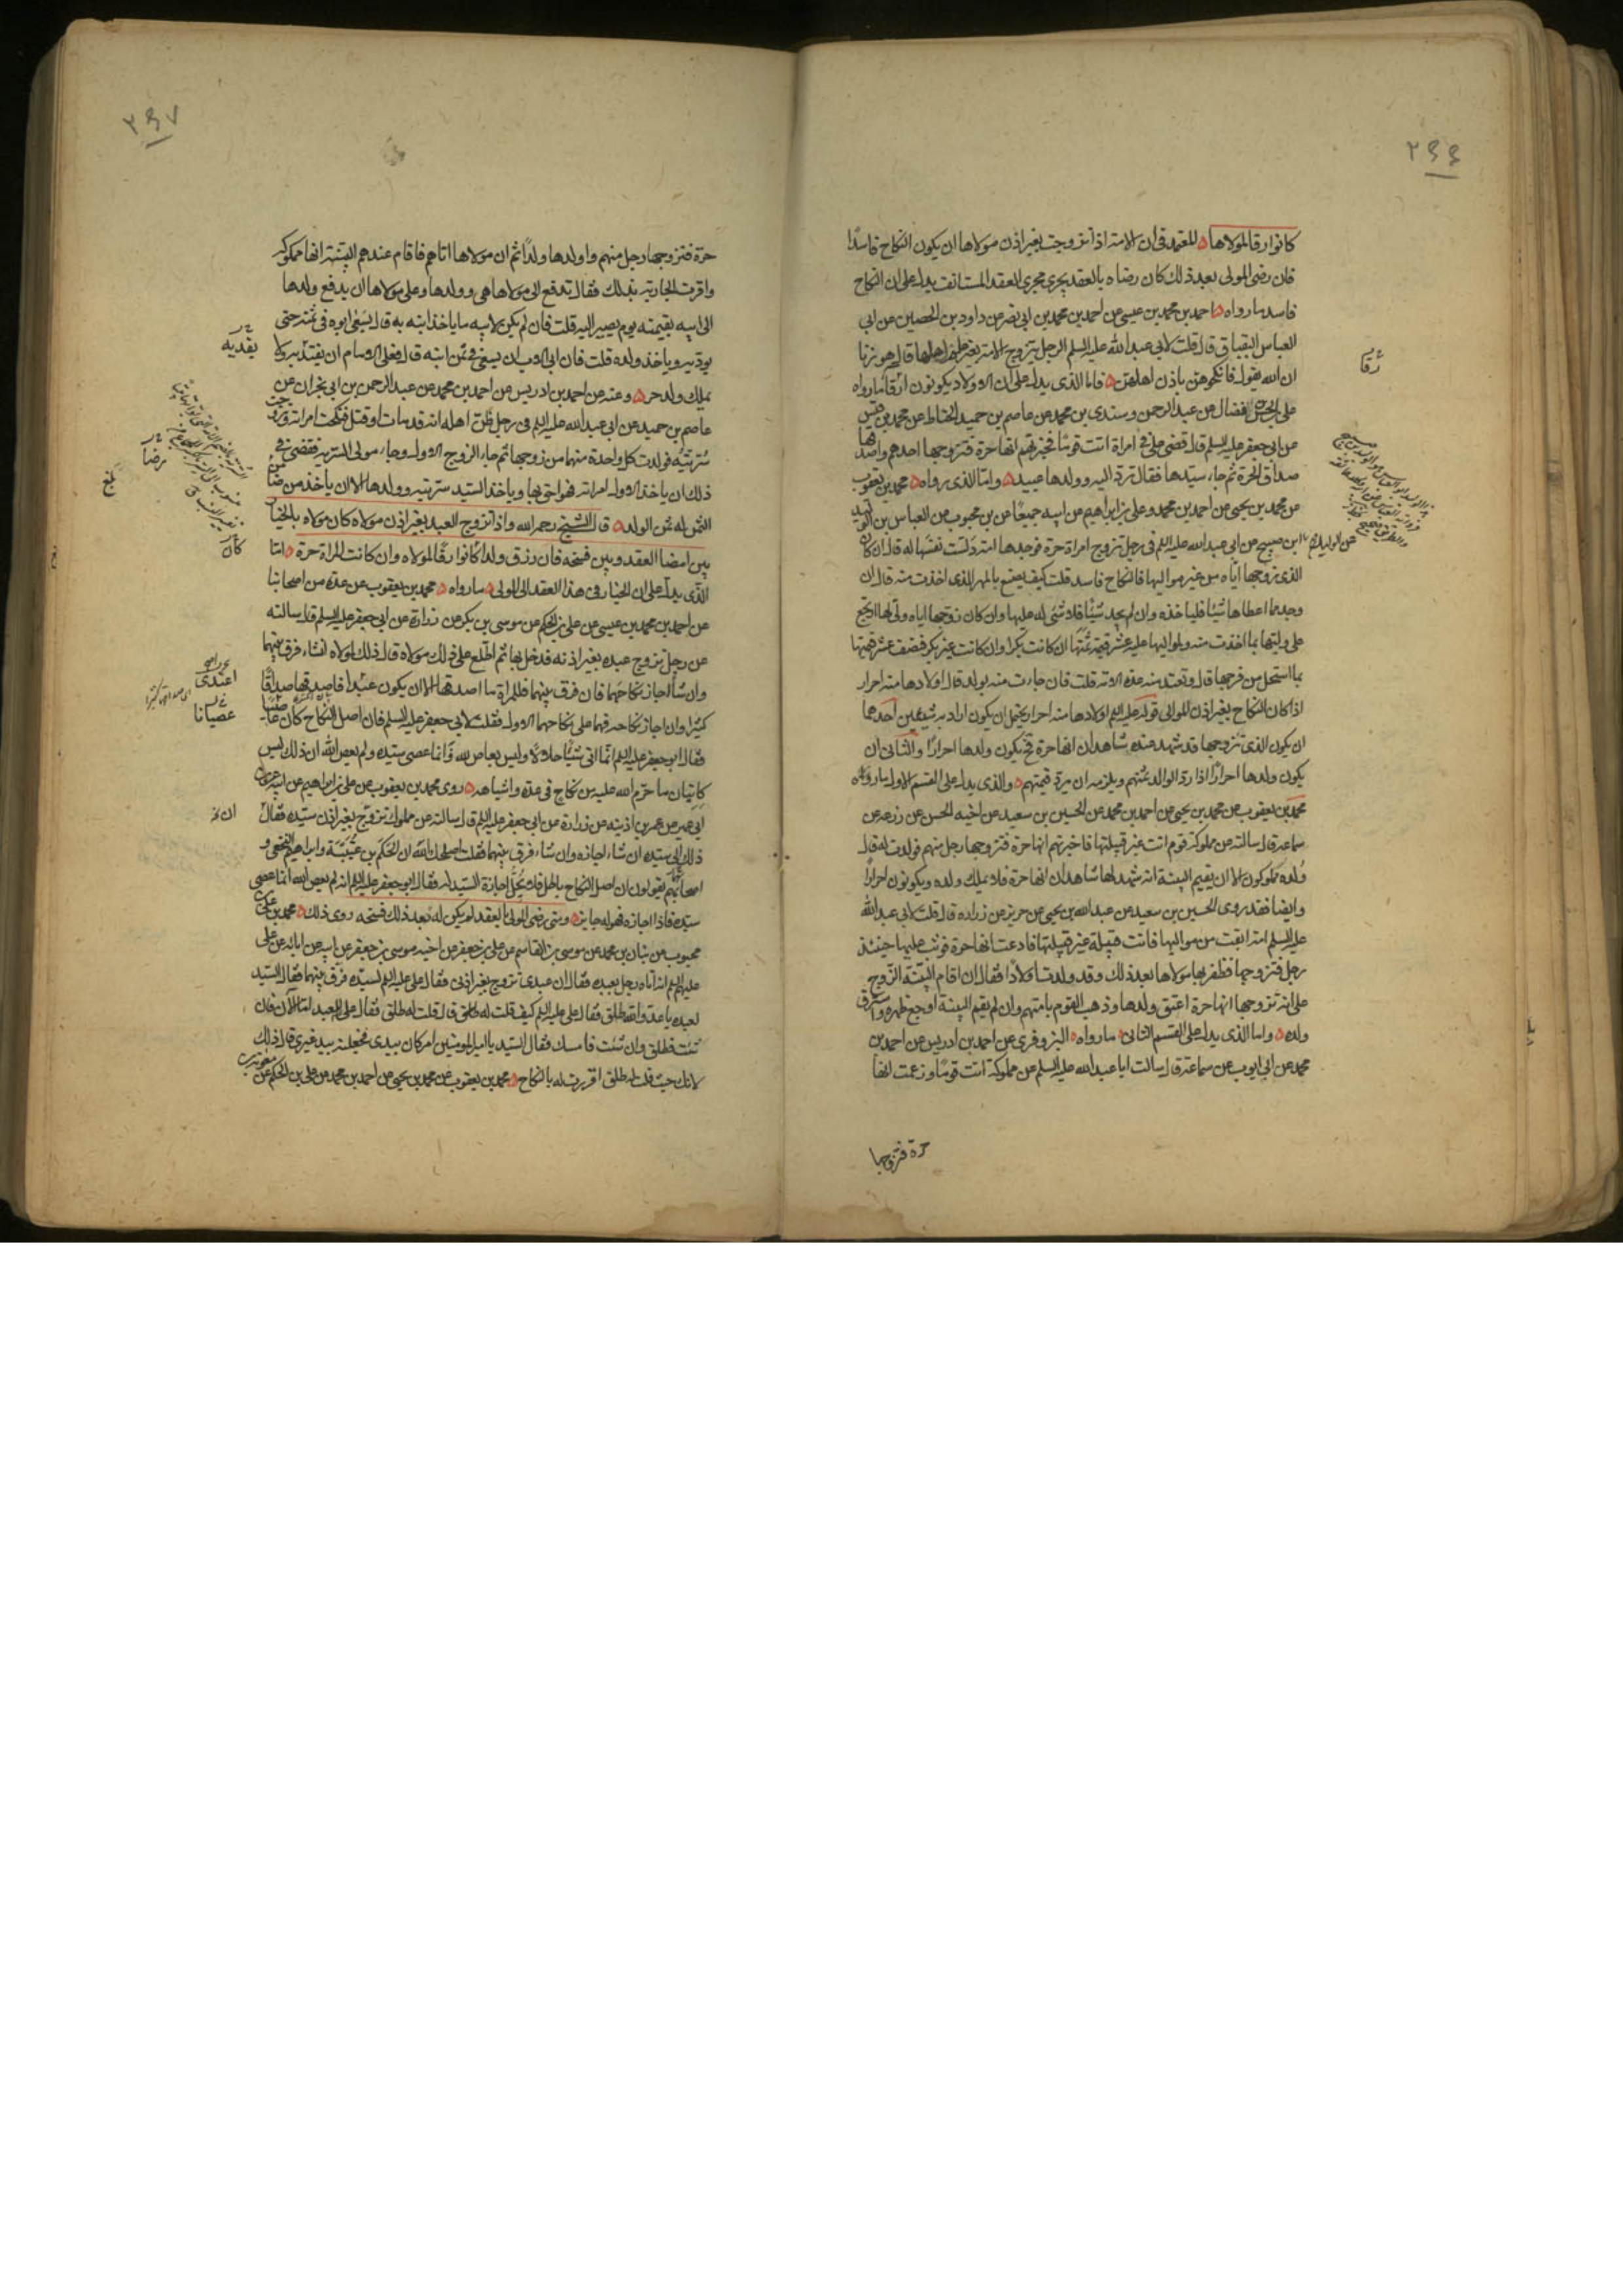 ٢٤٤
كانوا رقا لمولاها المعتمد في ان الامة اذا تزوجت بغير اذن مولاها ان يكون النكاح فاسدًا
فان رضى المولى بعد ذلك كان رضاه بالعقد يجرى مجرى العقد المستانف يدل على ان النكاح
فاسد ما رواه احمد بن محمد بن عيسى عن احمد بن محمد بن ابى نصر عن داود بن الحصين عن ابى
العباس البقباق قال قلت لابى عبد الله عليه السلم الرجل يتزوج الامة بغير علم اهلها قال هو زنا
ان الله يقول فانكحوهن باذن اهلهن فاما الذى يدل على ان الاولاد يكونون ارقا ما رواه
على بن الحسن بن فضال عن عبد الرحمن وسندى بن محمد عن عاصم بن حميد الحناط عن محمد بن قيس
عن ابى جعفر عليه السلم قال قضى على في امراة اتت قوما فخبرتهم انها حرة فتزوجها احدهم واصدقها
صداق الحرة ثم جاء سيدها فقال ترد اليه وولدها عبيد واما الذى رواه محمد بن يعقوب
عن محمد بن يحيى عن احمد بن محمد وعلى بن ابراهيم عن ابيه جميعًا عن بن محبوب عن العباس بن الوليد
ابن صبيح عن ابى عبد الله عليه السلم في رجل تزوج امراة حرة فوجدها امة دلست نفسها له قال ان كان
الذى زوجها اياه من غير مواليها فالنكاح فاسد قلت كيف يصنع بالمهر الذى اخذت منه قال ان
وجد مما اعطاها شيئا فلياخذه وان لم يجد شيئا فلا شى له عليها وان كان زوجها اياه ولى لها ارتجع
على وليها بما اخذت منه ولمواليها عليه عشر قيمة ثمنها ان كانت بكرا وان كانت غير بكر فنصف عشر قيمتها
بما استحل من فرجها قال وتعتد منه عدة الامة قلت فان جاءت منه بولد قال اولادها منه احرار
اذا كان النكاح بغير اذن الموالى قوله عليه السلم اولادها منه احرار يحتمل ان يكون اراد به شيئين احدهما
ان يكون الذى تزوجها قد شهد عنده شاهدان انها حرة فح يكون ولدها احرارًا والثانى ان
يكون ولدها احرارًا اذا رد الوالد ثمنهم ويلزمه ان يرد قيمتهم والذى يدل على القسم الاول ما رواه
محمد بن يعقوب عن محمد بن يحيى عن احمد بن محمد عن الحسين بن سعيد عن اخيه الحسن عن زرعه عن
سماعة قال سالته عن مملوكة قوم اتت غير قبيلتها فاخبرتهم انها حرة فتزوجها رجل منهم فولدت له قال
ولده مملوكون الا ان يقيم البينة انه شهد لها شاهدان انها حرة فلا يملك ولده ويكونون احرارًا
وايضا فقد روى الحسين بن سعيد عن عبد الله بن يحيى عن حريز عن زراره قال قلت لابى عبد الله
عليه السلم امة ابقت من مواليها فاتت قبيلة غير قبيلتها فادعت انها حرة فوثب عليها حينئذ
رجل فتزوجها فظفر بها مولاها بعد ذلك وقد ولدت اولادًا فقال ان اقام البينة الزوج
على انه تزوجها انها حرة اعتق ولدها وذهب القوم بامتهم وان لم يقيم البينة اوجع ظهره واسترق
ولده واما الذى يدل على القسم الثانى ما رواه البزوفرى عن احمد بن ادريس عن احمد بن
محمد عن ابى ايوب عن سماعة قال سالت ابا عبد الله عليه السلم عن مملوكة اتت قومًا وزعمت انها
حرة فتزوجها
٢٤٧
حرة فتزوجها رجل منهم واولدها ولدًا ثم ان مولاها اتاهم فاقام عندهم البينة انها مملوكة
واقرت الجارية بذلك فقال تدفع الى مولاها هى وولدها وعلى مولاها ان يدفع ولدها
الى ابيه بقيمته يوم يصير اليه قلت فان لم يكن لابيه ما ياخذ ابنه به قال يسعى ابوه في ثمنه حتى
يوديه وياخذ ولده قلت فان ابى الاب ان يسعى في ثمن ابنه قال فعلى الامام ان يفتديه ولا
يملك ولد حر وعنه عن احمد بن ادريس عن احمد بن محمد عن عبد الرحمن بن ابى نجران عن
عاصم بن حميد عن ابى عبد الله عليه السلم في رجل ظن اهله انه قد مات او قتل فنكحت امراته وتزوجت
سريته فولدت كل واحدة منهما من زوجها ثم جاء الزوج الاول وجاء مولى السرية فقضى في
ذلك ان ياخذ الاول امراته فهو احق بها وياخذ السيد سريته وولدها الا ان ياخذ من رضا
الثمن له ثمن الولد قال الشيخ رحمه الله واذا تزوج العبد بغير اذن مولاه كان مولاه بالخيار
بين امضا العقد وبين فسخه فان رزق ولدا كانوا رقا لمولاه وان كانت المراة حرة اما
الذى يدل على ان الخيار في هذا العقد الى المولى ما رواه محمد بن يعقوب عن عدة من اصحابنا
عن احمد بن محمد بن عيسى عن على بن الحكم عن موسى بن بكر عن زرارة عن ابى جعفر عليه السلم قال سالته
عن رجل تزوج عبده بغير اذنه فدخل بها ثم اطلع على ذلك مولاه قال ذلك لمولاه ان شاء فرق بينهما
وان شاء اجاز نكاحهما فان فرق بينهما فللمراة ما اصدقها الا ان يكون عبدا فاصدقها صداقًا
كثيرًا وان اجاز نكاحه فهما على نكاحهما الاول فقلت لابى جعفر عليه السلم فان اصل النكاح كان
فقال ابو جعفر عليه السلم انما اتى شيئًا حلالًا وليس بعاص لله وانما عصى سيده ولم يعص الله ان ذلك ليس
كاتيان ما حرم الله عليه من نكاح في عدة واشباهه روى محمد بن يعقوب عن على بن ابراهيم عن ابيه عن
ابى عمير عن عمر بن اذينه عن زرارة عن ابى جعفر عليه السلم قال سالته عن مملوك تزوج بغير اذن سيده فقال
ذلك الى سيده ان شاء اجازه وان شاء فرق بينهما فقلت اصلحك الله ان الحكم بن عتيبة وابراهيم النخعى و
اصحابهم يقولون ان اصل النكاح باطل فلا يحل اجازة السيد له فقال ابو جعفر عليه السلم انه لم يعص الله انما عصى
سيده فاذا اجازه فهو له جايز ومتى رضى المولى بالعقد لم يكن له بعد ذلك فسخه روى ذلك محمد بن على
محبوب عن بنان بن محمد عن موسى بن القاسم عن على بن جعفر عن اخيه موسى بن جعفر عن ابيه عن ابائه عن على
عليهم السلم انه اتاه رجل بعبده فقال ان عبدى تزوج بغير اذنى فقال على عليه السلم لسيده فرق بينهما فقال السيد
لعبده يا عدو الله طلق فقال على عليه السلم كيف قلت له طلق قال قلت له طلق فقال على للعبد اما الآن فان
شئت فطلق وان شئت فامسك فقال السيد يا امير المومنين امر كان بيدى فجعلته بيد غيرى قال ذلك
لانك حيث قلت له طلق اقررت له بالنكاح محمد بن يعقوب عن محمد بن يحيى عن احمد بن محمد عن على بن الحكم عن